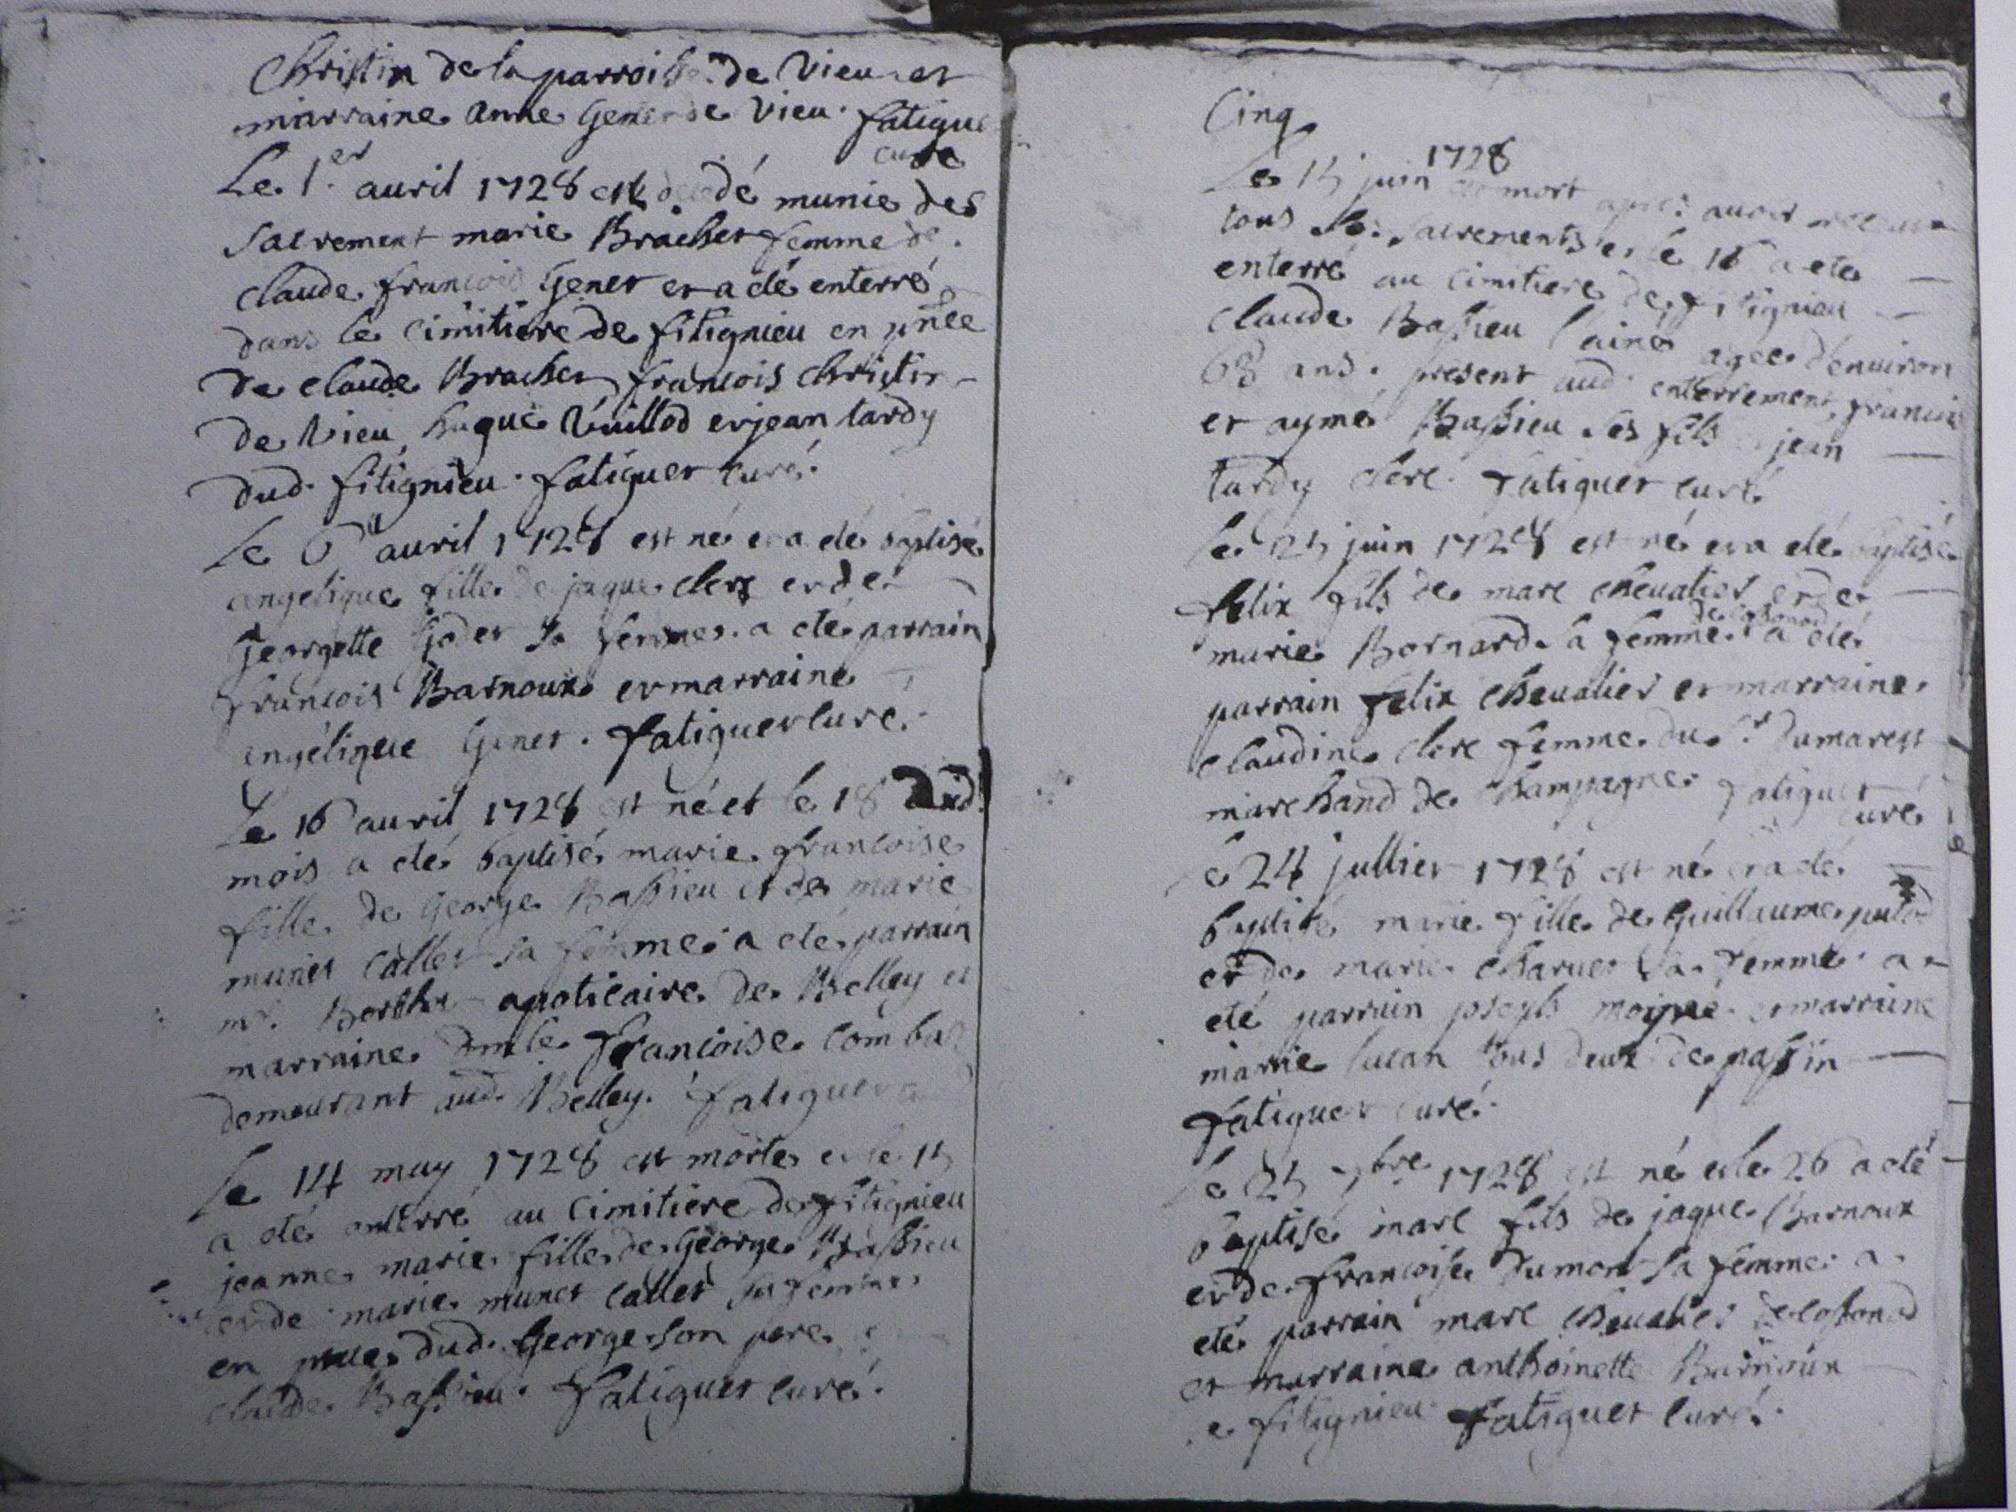 Christin de la parroisse de Vieu et
marraine anne Genet de Vieu. fatigue
curé
Le 1.er auril 1728 est decedé munie des
Sacrement marie Brachet femme de
claude francois Genet et a eté enterré
dans le cimitiere de fitignieu en pñce
de claude Brachet francois christin
de Vieu, hugue Vuillod et jean tardy
dud. fitignieu. fatiguet curé.
Le 6 auril 1728 est né et a eté baptisé
angelique fille de jaque clerc et de
Georgette Godet sa femme. a eté parrain
francois Barnoux et marraine
angélique Genet. fatiguet curé.
Le 16 auril 1728 est né et le 18 dud.
mois a eté baptisé marie francoise
fille de George Bassieu et de marie
munet callet sa femme. a eté parrain
mr. Berthet apoticaire de Belley et
marraine dmlle francoise combaz
demeurant aud. Belley. fatiguet
le 14 may 1728 est morte et le 15
a eté enterré au cimitiere de fitignieu
jeanne marie fille de George Bassieu
et de marie munet callet sa femme
en pnce dud. George son pere
claude Bassieu. fatiguet curé.
Cinq
1728
Le 15 juin est mort apres auoir receu
tous les sacrements et le 16 a eté
enterré au cimitiere de fitignieu
claude Bassieu l'ainé agee denuiron
68 ans. present aud. enterrement, francois
et aymé Bassieu ses fils et jean
tardy clerc. fatiguet curé
le 25 juin 1728 est né et a eté baptisé
felix fils de marc cheualier et de
marie Bornard sa femme a eté
parrain felix cheualier et marraine
claudine clerc femme du Sr. Dumarest
marchand de champagne. fatiguet
curé
le 24 jullier 1728 est né et a eté
baptisé marie fille de Guillaume
et de marie charuet sa femme. a
eté parrain joseph moiné et marraine
marie lucan tous deux de passin
fatiguet curé.
le 25 7bre 1728 est né et le 26 a eté
baptisé marc fils de jaque Barnoux
et de francoise Dumont sa femme. a
eté parrain marc cheualier
et marraine anthoinette Barnoux
de fitignieu. fatiguet curé.